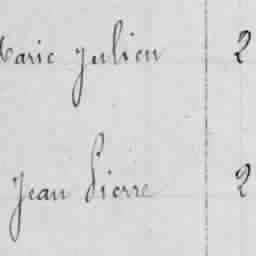 Marie Julien 2
Jean Pierre 2